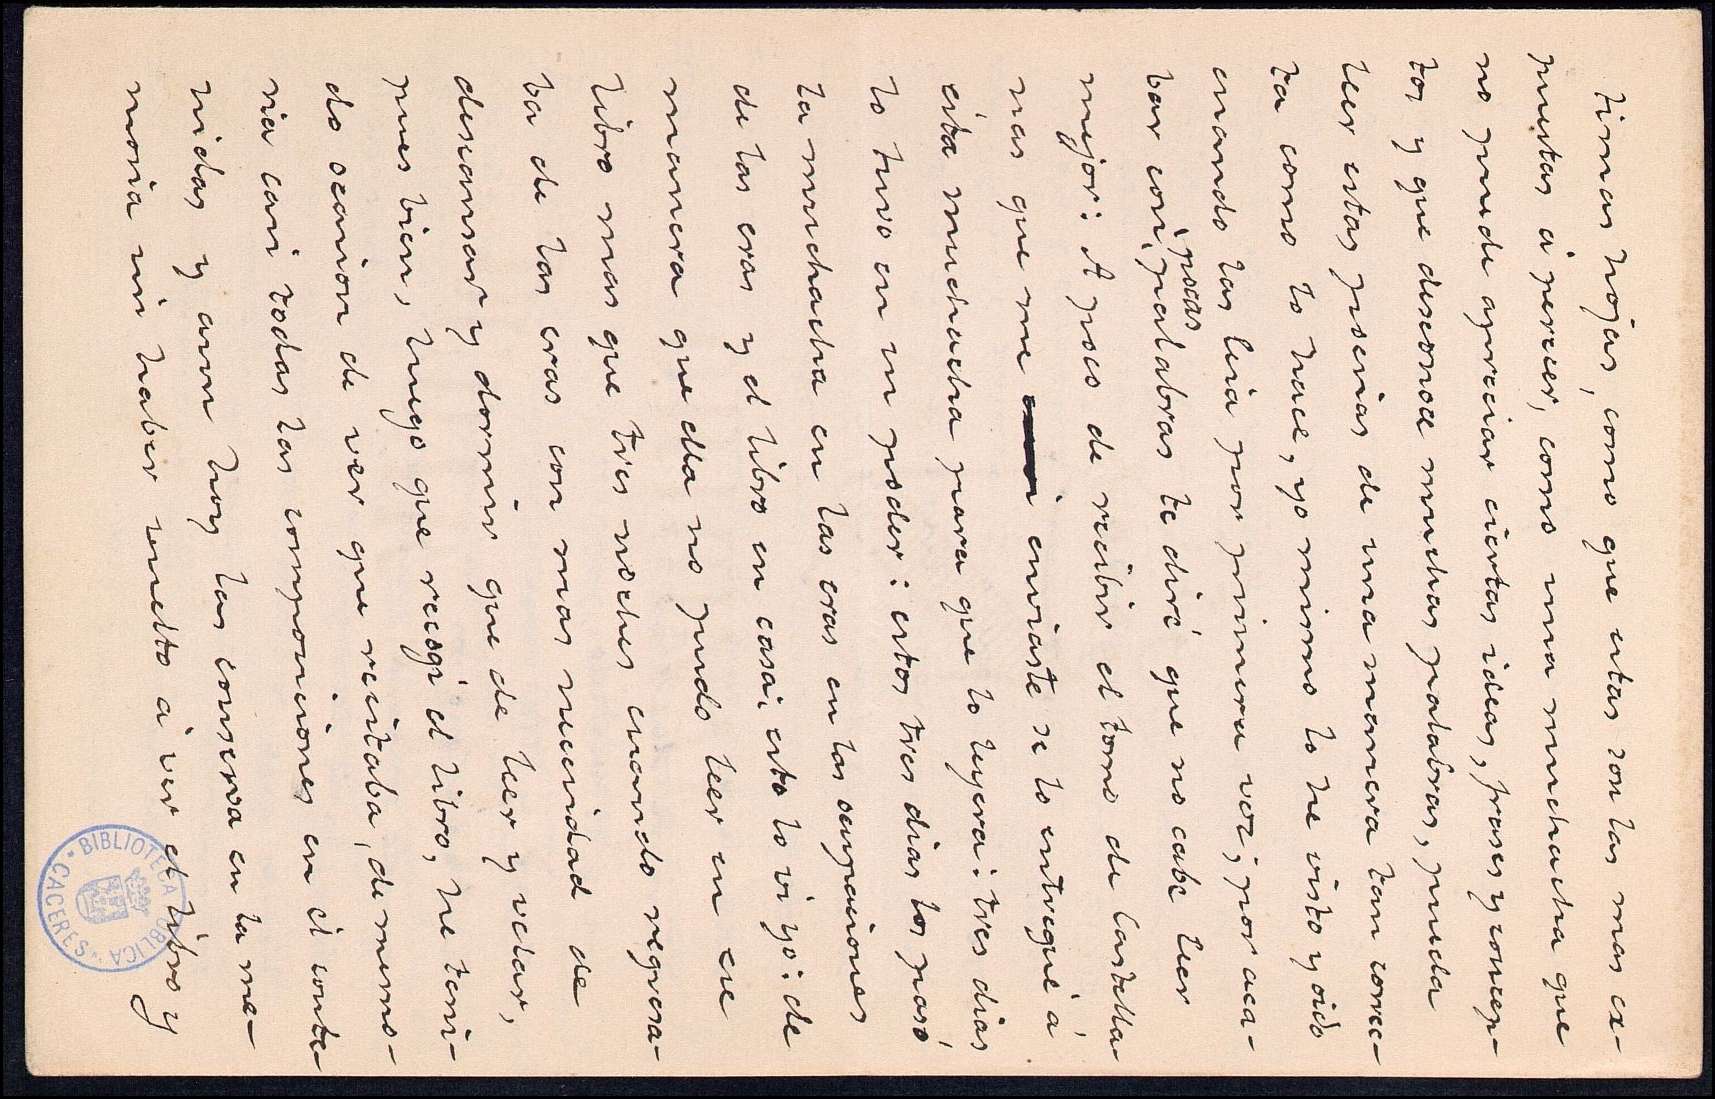 timas hojas, como que estas son las mas ex-
puestas á perecer, como una muchacha que
no puede apreciar ciertas ideas, frases y concep-
tos y que desconoce muchas palabras, pueda
leer estas poesias de una manera tan correc-
ta como lo hace, yo mismo lo he visto y oido
cuando las leia por primera vez; por aca-
bar con pocas palabras te diré que no cabe leer
mejor: A poco de recibir el tomo de Castella-
nas que me enviaste se lo entregué á
esta muchacha para que lo leyera: tres dias
lo tuvo en su poder: estos tres dias los pasó
la muchacha en las eras en las ocupaciones
de las eras y el libro en casa; esto lo vi yo: de
manera que ella no pudo leer en ese
libro mas que tres noches cuando regresa-
ba de las eras con mas necesidad de
descansar y dormir que de leer y velar,
pues bien, luego que recogí el libro, he teni-
do ocasion de ver que recitaba, de memo-
ria casi todas las composiciones en él conte-
nidas y aun hoy las conserva en la me-
moria sin haber vuelto á ver el libro y
BIBLIOTECA PUBLICA
CACERES